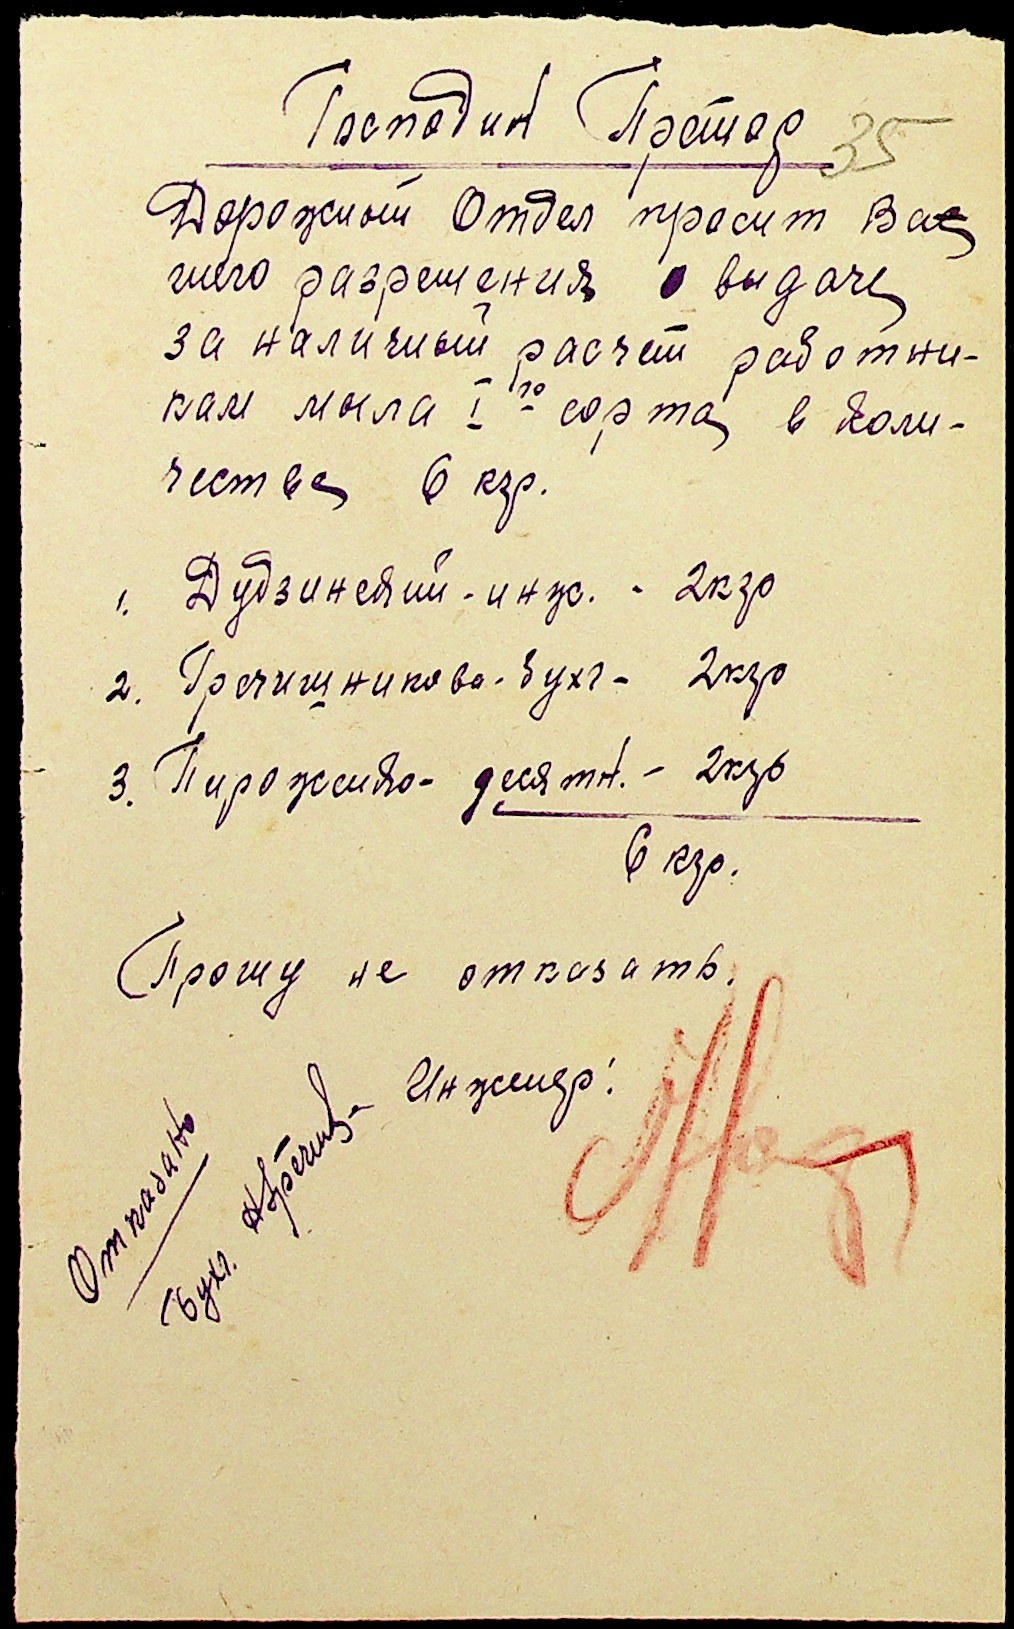 Господин Претор 35
Дорожный Отдел просит Ва
шего разрешения о выдаче
за наличный расчет работни-
кам мыла I го сорта в коли-
честве 6 кгр.
1. Дудзинский - инж. - 2кгр
2. Гречишникова - бухг - 2кгр
3. Пироженко - десятн. - 2кгр
6 кгр.
Прошу не отказать.
Инженер:
Отказано
Бухг.